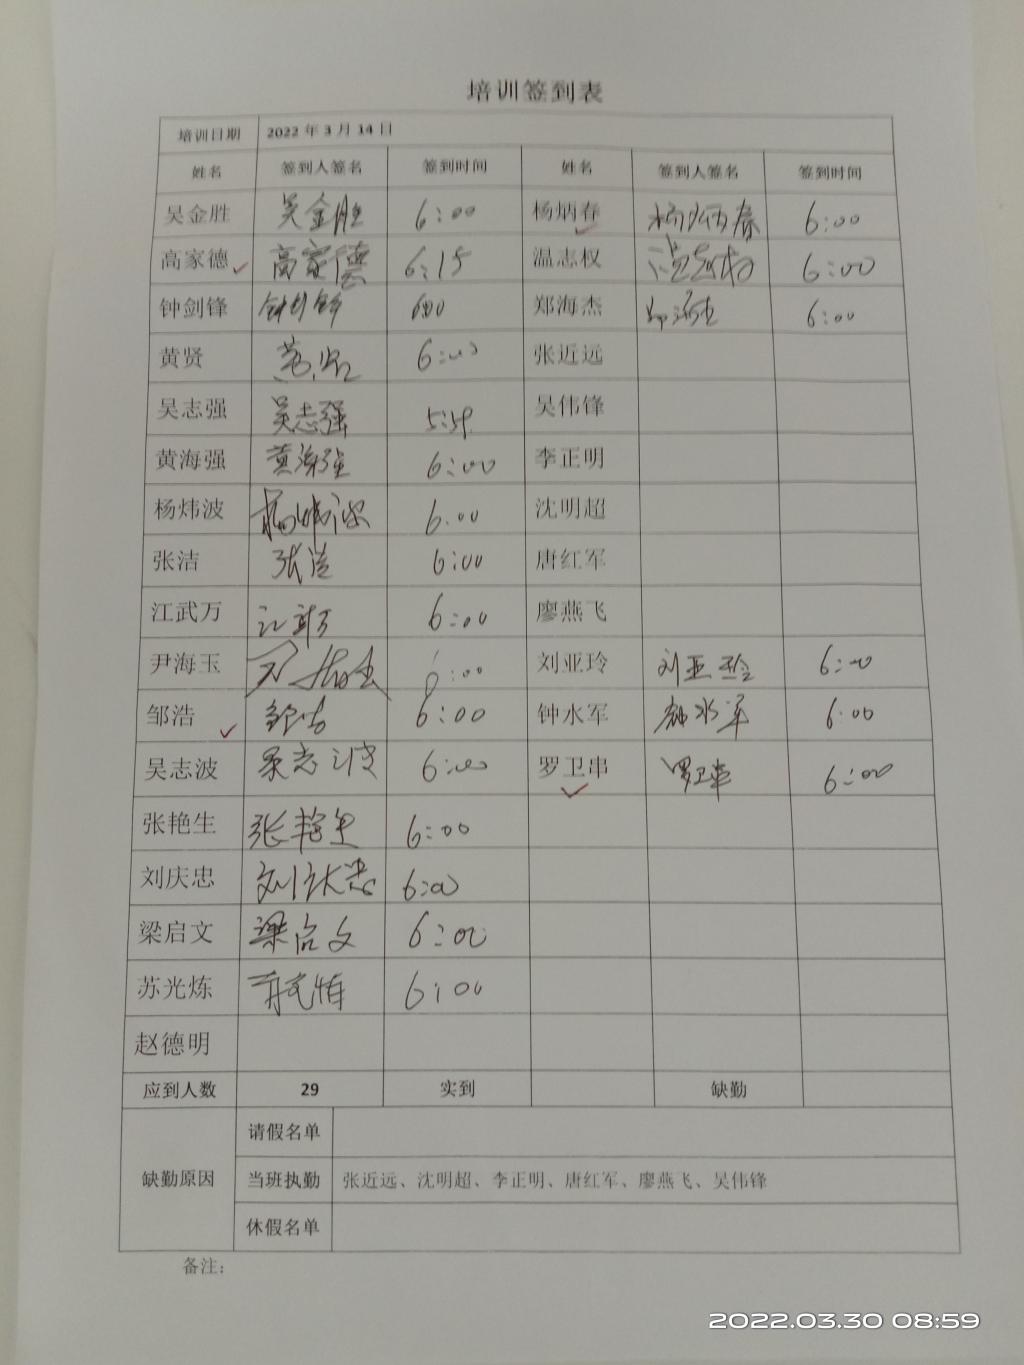 培训签到表
培训日期 2022 年 3 月 14 日
姓名 签到人签名 签到时间 姓名 签到人签名 签到时间
吴金胜 吴金胜 6:00 杨炳春 杨炳春 6:00
高家德 高家德 6:15 温志权 温志权 6:00
钟剑锋 钟剑锋 600 郑海杰 郑海杰 6:00
黄贤 黄贤 6:00 张近远
吴志强 吴志强 5:59 吴伟锋
黄海强 黄海强 6:00 李正明
杨炜波 杨炜波 6:00 沈明超
张洁 张洁 6:00 唐红军
江武万 江武万 6:00 廖燕飞
尹海玉 6:00 刘亚玲 刘亚玲 6:00
邹浩 邹浩 6:00 钟水军 钟水军 6:00
吴志波 吴志波 6:00 罗卫串 罗卫串 6:00
张艳生 张艳生 6:00
刘庆忠 刘庆忠 6:00
梁启文 梁启文 6:00
苏光炼 6:00
赵德明
应到人数 29 实到 缺勤
缺勤原因 请假名单
当班执勤 张近远、沈明超、李正明、唐红军、廖燕飞、吴伟锋
休假名单
备注:
2022.03.30 08:59